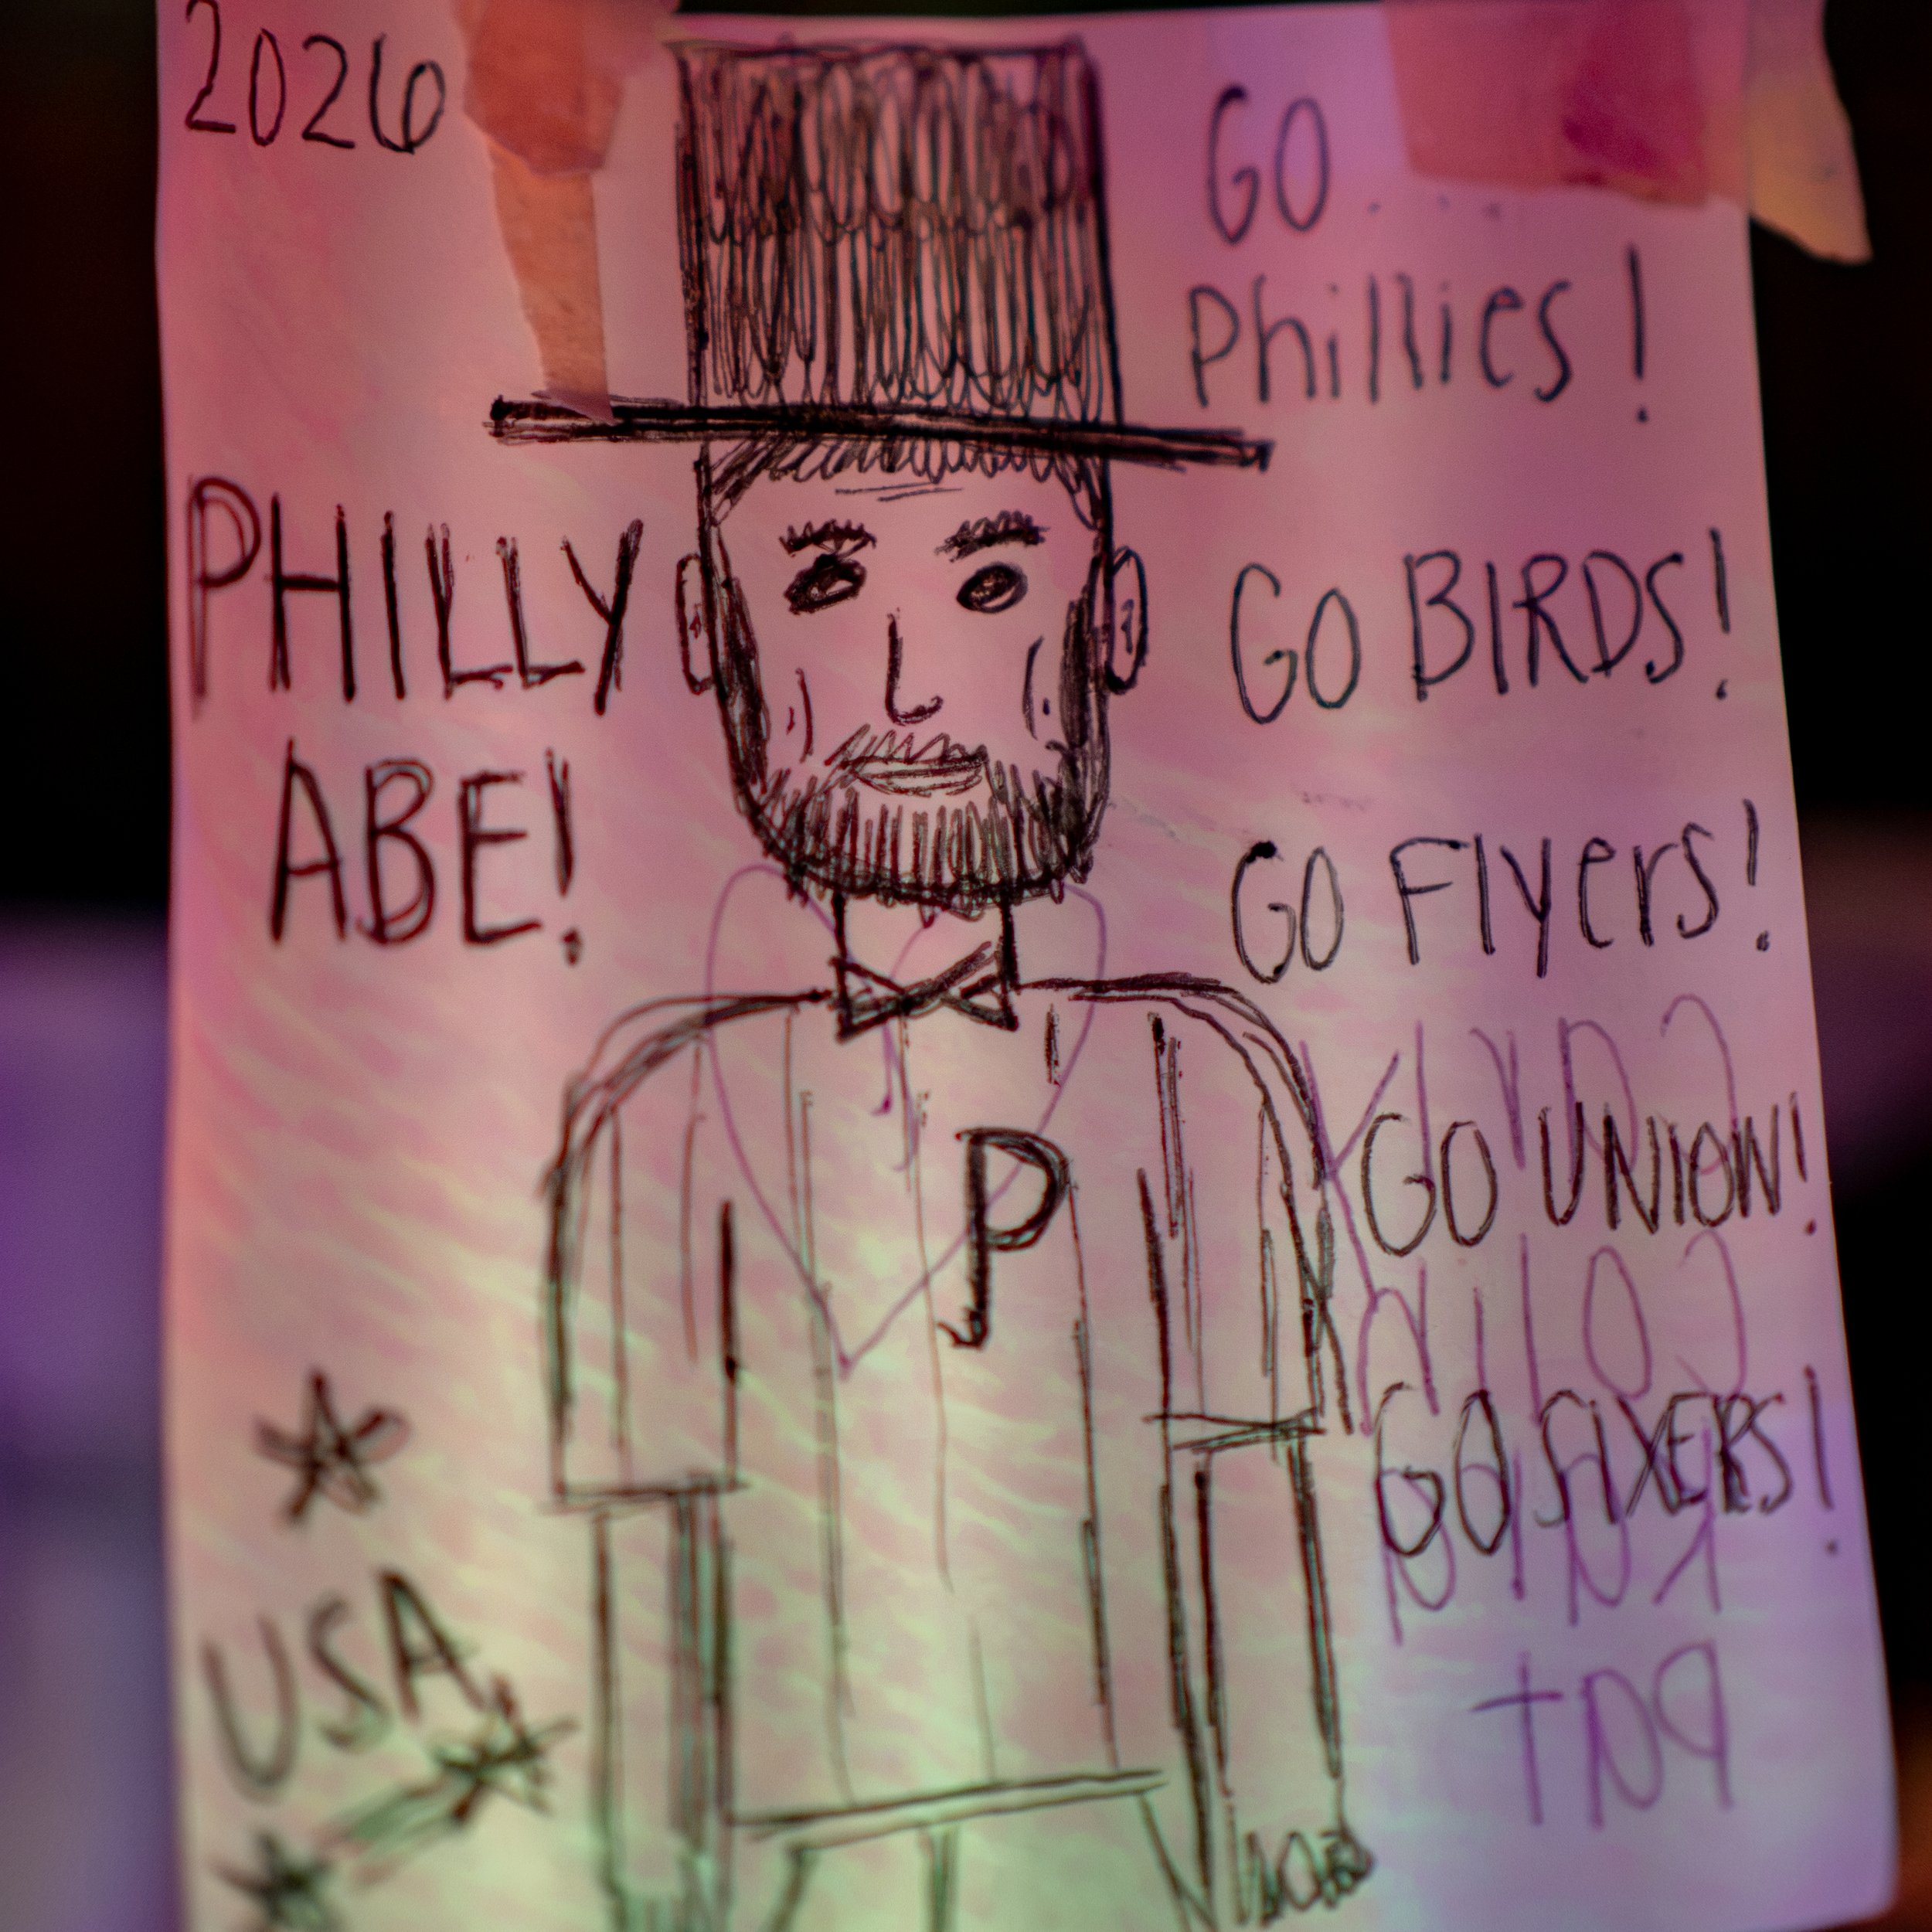 2026
PHILLY
ABE!
GO
Phillies!
GO BIRDS!
GO Flyers!
GO UNION!
GO SIXERS!
P
USA
Gary
Colin
Pat